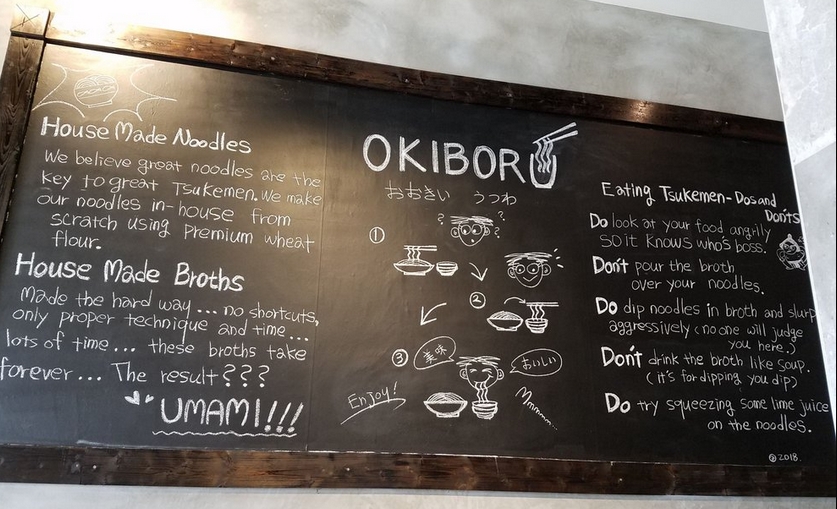 House Made Noodles
We believe great noodles are the
key to great Tsukemen. We make
our noodles in-house from
scratch using premium wheat
flour.
House Made Broths
Made the hard way... no shortcuts,
only proper technique and time...
lots of time... these broths take
forever... The result???
UMAMI!!!
OKIBORU
おおきい うつわ
①
? ? ? ?
②
③
美味
おいしい
Enjoy!
Mmmm...
Eating Tsukemen-Dos and
Don'ts
Do look at your food angrily
so it knows who's boss.
Don't pour the broth
over your noodles.
Do dip noodles in broth and slurp
aggressively (no one will judge
you here.)
Don't drink the broth like soup.
(it's for dipping you dip)
Do try squeezing some lime juice
on the noodles.
©2018.